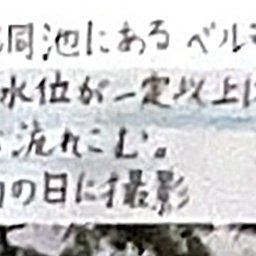 洞池にあるベル
水位が一定以上に
流れこむ。
の日に撮影